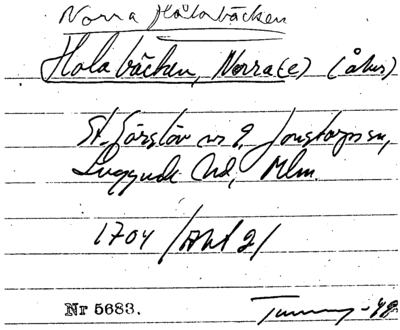 Norra Hålabäcken
Hola bäcken, Norra(e) (åker)
St. Görslöv nr 9, Jonstorps sn,
Luggude hd, Mlm.
1704 /Akt 2/
Nr 5683.